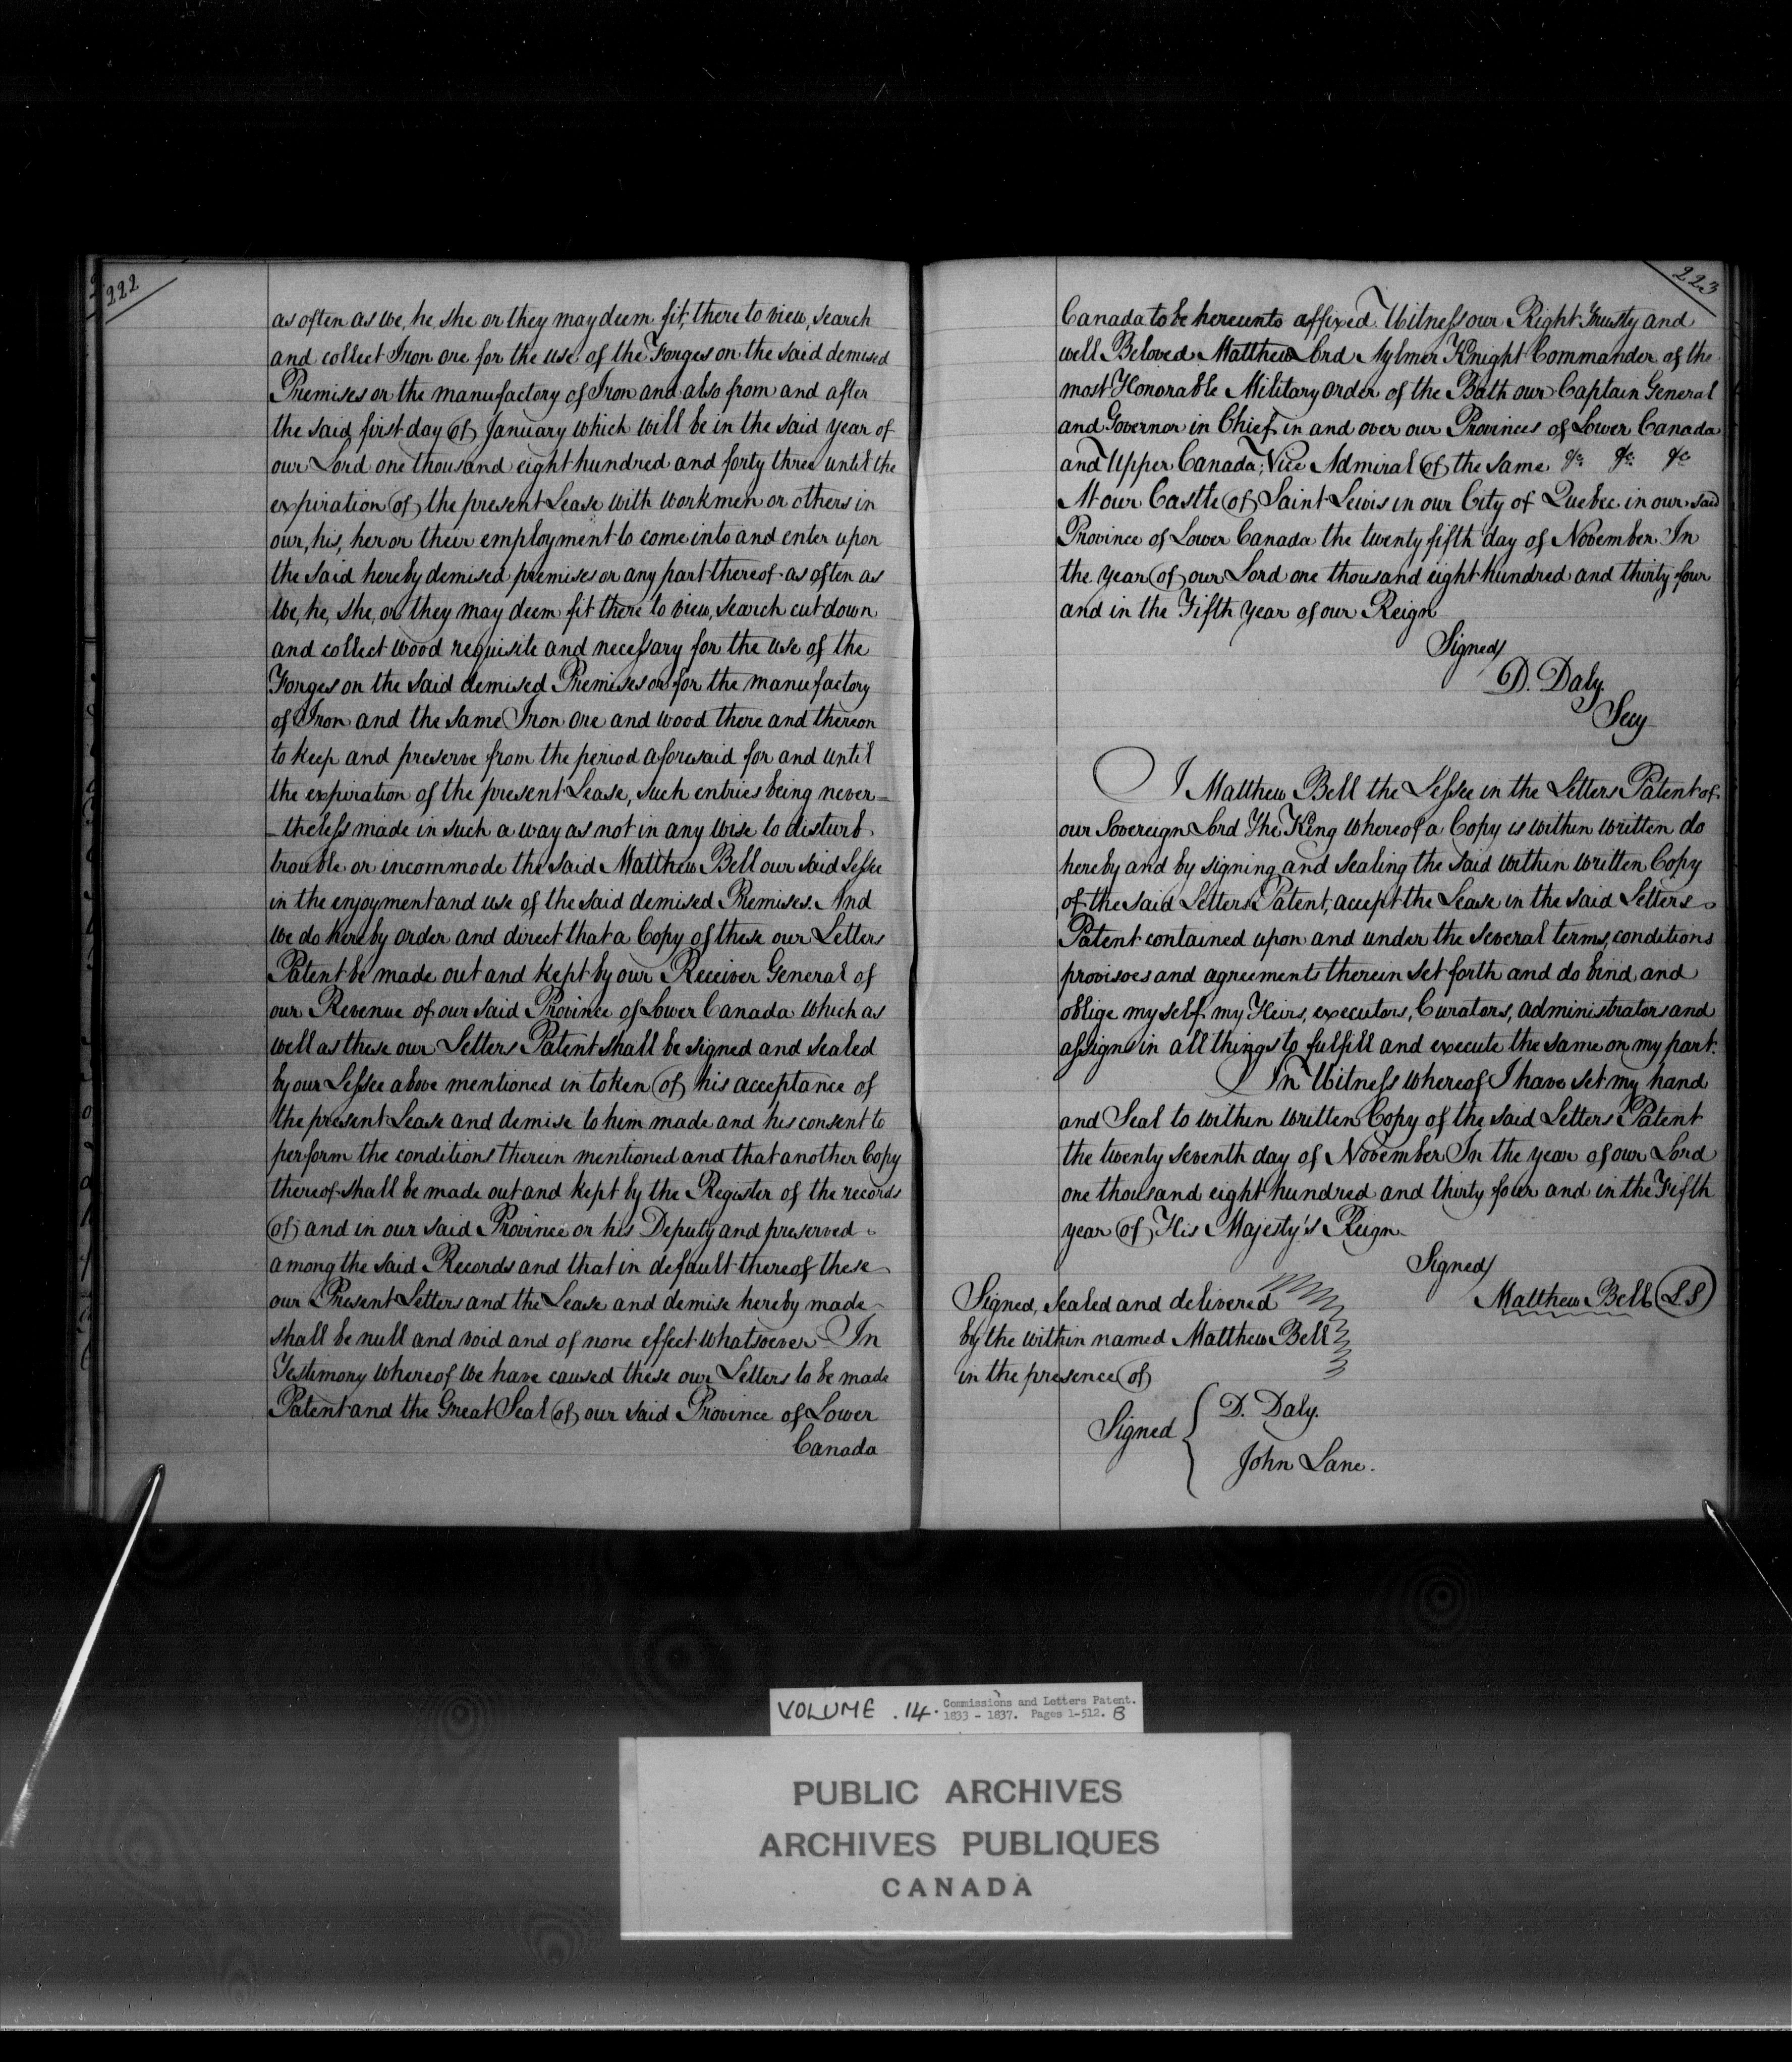 222
as often as we, he, she or they may deem fit, there to view, search
and collect Iron ore for the use of the Forges on the said demised
Premises or the manufactory of Iron and also from and after
the said first day of January which will be in the said year of
our Lord one thousand eight hundred and forty three until the
expiration of the present Lease with workmen or others in
our, his, her or their employment to come into and enter upon
the said hereby demised premises or any part thereof as often as
We, he, she, or they may deem fit there to view, search cut down
and collect wood requisite and necessary for the use of the
Forges on the said demised Premises or for the manufactory
of Iron and the same Iron ore and wood there and thereon
to keep and preserve from the period aforesaid for and until
the expiration of the present Lease, such entries being never=
=theless made in such a way as not in any wise to disturb
trouble or incommode the said Matthew Bell our said Lessee
in the enjoyment and use of the said demised Premises. And
we do hereby order and direct that a Copy of these our Letters
Patent be made out and kept by our Receiver General of
our Revenue of our said Province of Lower Canada which as
well as these our Letters Patent shall be signed and sealed
by our Lessee above mentioned in token of his acceptance of
the present Lease and demise to him made and his consent to
perform the conditions therein mentioned and that another Copy
thereof shall be made out and kept by the Register of the records
of and in our said Province or his Deputy and preserved
among the said Records and that in default thereof these
our Present Letters and the Lease and demise hereby made
shall be null and void and of none effect whatsoever In
Testimony whereof we have caused these our Letters to be made
Patent and the Great Seal of our said Province of Lower
Canada
223
Canada to be hereunto affixed Witness our Right Trusty and
well Beloved Matthew Lord Aylmer Knight Commander of the
most Honorable Military order of the Bath our Captain General
and Governor in Chief in and over our Provinces of Lower Canada
and Upper Canada, Vice Admiral of the same &c &c &c
At our Castle of Saint Lewis in our City of Quebec in our said
Province of Lower Canada the twenty fifth day of November In
the year of our Lord one thousand eight hundred and thirty four
and in the Fifth Year of our Reign
Signed/
D. Daly.
Secy
I Matthew Bell the Lessee in the Letters Patent of
our Sovereign Lord The King whereof a Copy is within written do
hereby and by signing and sealing the said within written Copy
of the said Letters Patent, accept the Lease in the said Letters
Patent contained upon and under the several terms, conditions
provisoes and agreements therein set forth and do bind and
oblige myself, my Heirs, executors, Curators, administrators and
assigns in all things to fulfill and execute the same on my part.
In Witness whereof I have set my hand
and Seal to within written Copy of the said Letters Patent
the twenty seventh day of November In the year of our Lord
one thousand eight hundred and thirty four and in the Fifth
year of His Majesty's Reign
Signed/
Matthew Bell L.S
Signed, sealed and delivered
by the within named Matthew Bell
in the presence of
Signed
D. Daly.
John Lane.
VOLUME . 14. Commissions and Letters Patent.
1833 - 1837. Pages 1-512. B
PUBLIC ARCHIVES
ARCHIVES PUBLIQUES
CANADA